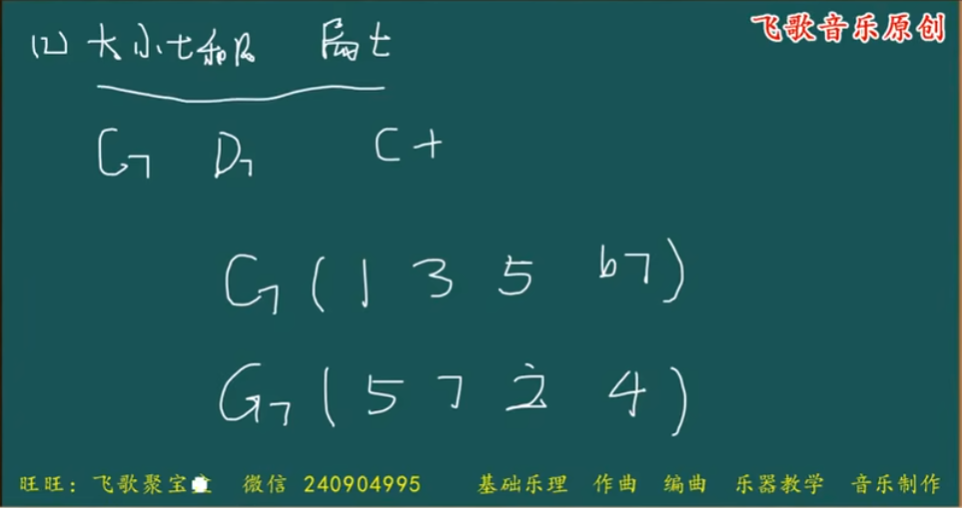 飞歌音乐原创
(2) 大小七和弦 属七
C7 D7 C+
C7 (1 3 5 b7)
G7 (5 7 2̇ 4)
旺旺：飞歌聚宝 微信 240904995 基础乐理 作曲 编曲 乐器教学 音乐制作